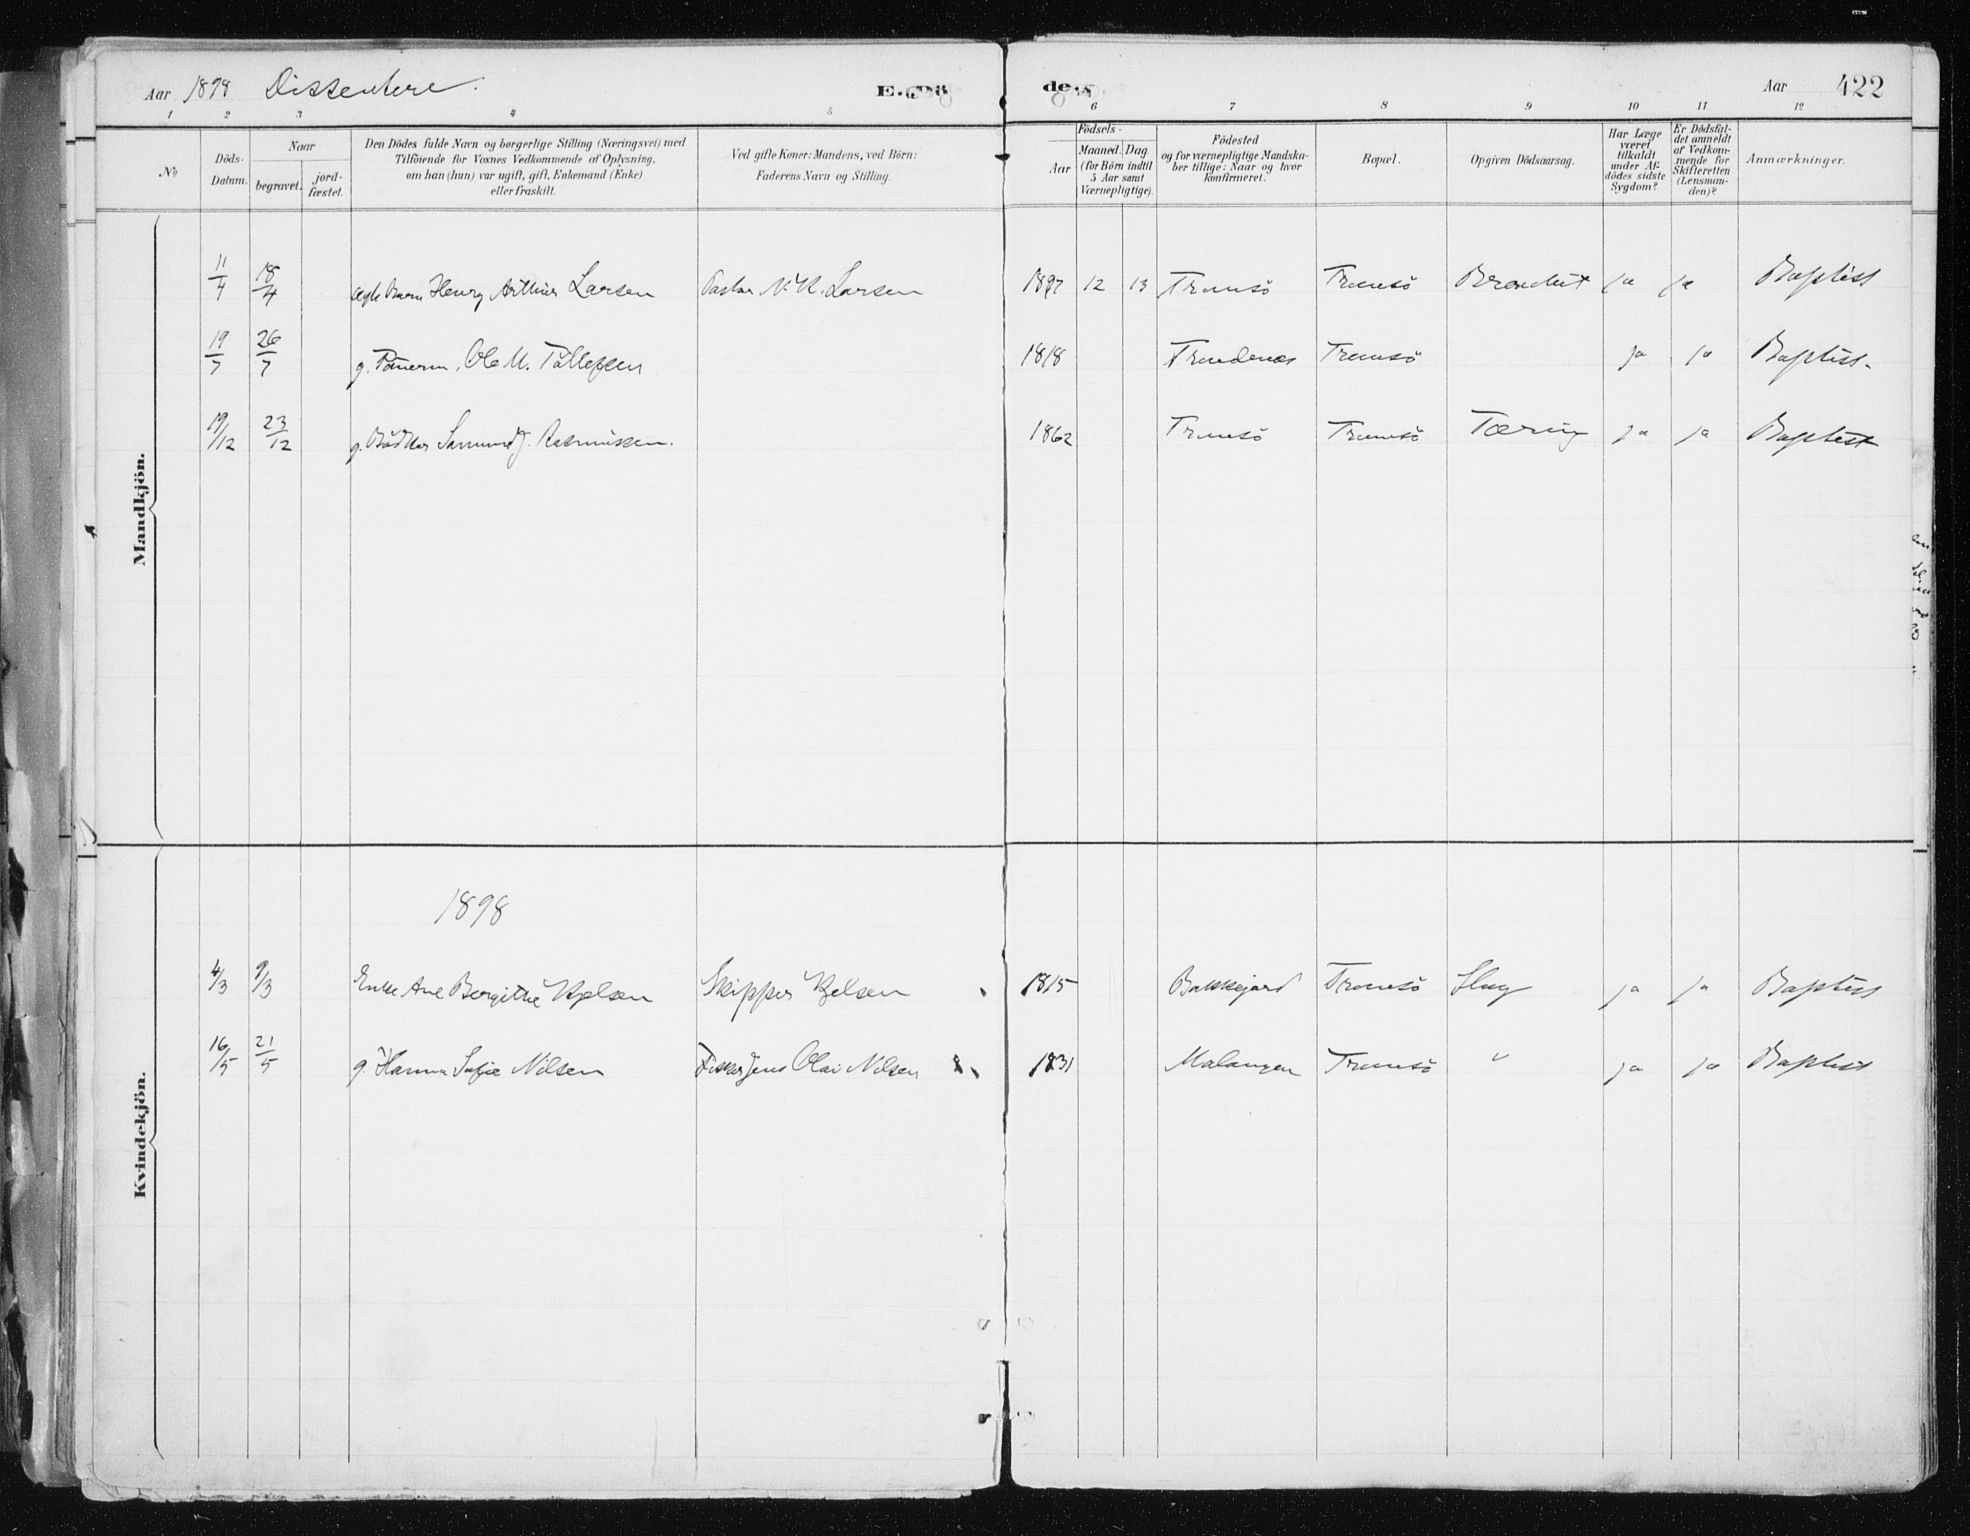 Aar 1898 Dissentere.
E. Dö
de.
Aar 422
1 2 3 4 5 6 7 8 9 10 11 12
No
Döds-Datum.
Naar
begravet.
jord-fæstet.
Den Dödes fulde Navn og borgerlige Stilling (Næringsvei) med
Tilföiende for Voxnes Vedkommende af Oplysning,
om han (hun) var ugift, gift, Enkemand (Enke)
eller fraskilt.
Ved gifte Koner: Mandens, ved Börn:
Faderens Navn og Stilling.
Födsels-
Aar
Maaned. Dag.
(for Börn indtil
5 Aar samt
Værnepligtige).
Födested
og for værnepligtige Mandska-
ber tillige: Naar og hvor
konfirmeret.
Bopæl.
Opgiven Dödsaarsag.
Har Læge
været
tilkaldt
under Af-
dödes sidste
Sygdom?
Er Dödsfal-
det anmeldt
af Vedkom-
mende for
Skifteretten
(Lensman-
den)?
Anmærkninger.
Mandkjön.
11/4 18/4 Barn Henry Arthur Larsen Pastor N. K. Larsen 1897 12 13 Tromsö Tromsö ja ja Baptist
19/7 26/7 g. Ole M. Tollefsen 1818 Trondenes Tromsö ja ja Baptist.
19/12 23/12 g. Bödker Samund J. Rasmussen. 1862 Tromsö Tromsö Tæring ja ja Baptist
Kvindekjön.
1898
4/3 9/3 Enke Ane Bergithe Kjelsen Skipper Kjelsen 1815 Bakkejord Tromsö Slag ja ja Baptist
16/5 21/5 g. Hanna Sofie Nilsen Fisker Jens Olai Nilsen 1831 Malangen Tromsö " ja ja Baptist